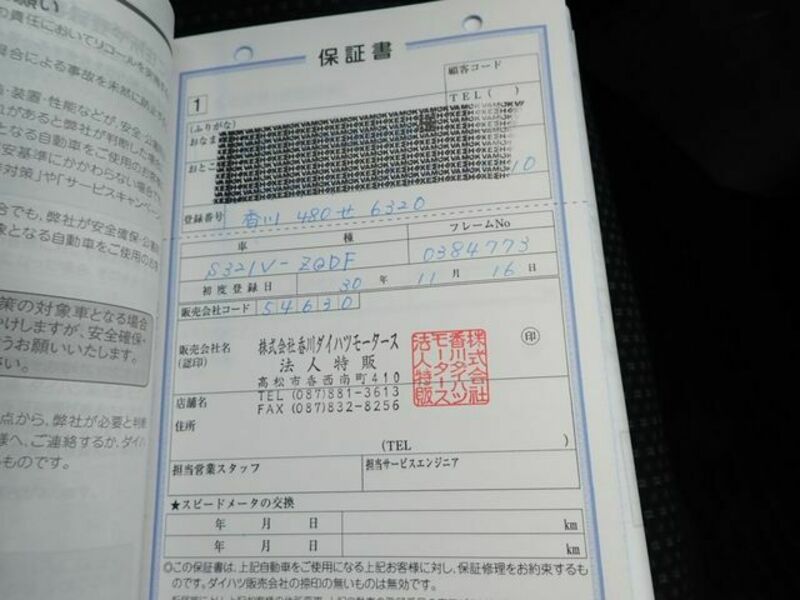 願い
の責任においてリコールを実施
場合による事故を未然に防止
・装置・性能などが、安全・公害
があると弊社が判断した場合
となる自動車をご使用のお客
安基準にかかわらない場合で
対策」や「サービスキャンペーン
合でも、弊社が安全確保・公害
象となる自動車をご使用のお客
策の対象車となる場合
かけしますが、安全確保・
うお願いいたします。
さい。
点から、弊社が必要と判断
様へ、ご連絡するか、ダイハ
ものです。
保証書
1
顧客コード
TEL( )
(ふりがな)
おなま
おところ
10
登録番号 香川 480 せ 6320
車種 フレームNo
S321V-ZQDF 0384773
初度登録日 30年 11月 16日
販売会社コード 54630
販売会社名
(認印)
株式会社香川ダイハツモータース
法人特販
高松市香西南町410
TEL (087)881-3613
FAX (087)832-8256
株式会社
香川ダイハツ
モータース
法人特販
印
店舗名
住所
(TEL )
担当営業スタッフ 担当サービスエンジニア
★スピードメータの交換
年 月 日 km
年 月 日 km
◎この保証書は、上記自動車をご使用になる上記お客様に対し、保証修理をお約束するも
のです。ダイハツ販売会社の捺印の無いものは無効です。